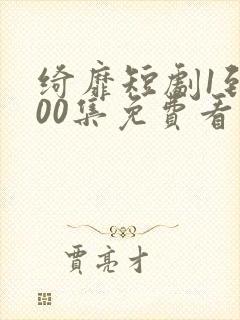 綺靡短劇1到
00集免費看
賈亮才